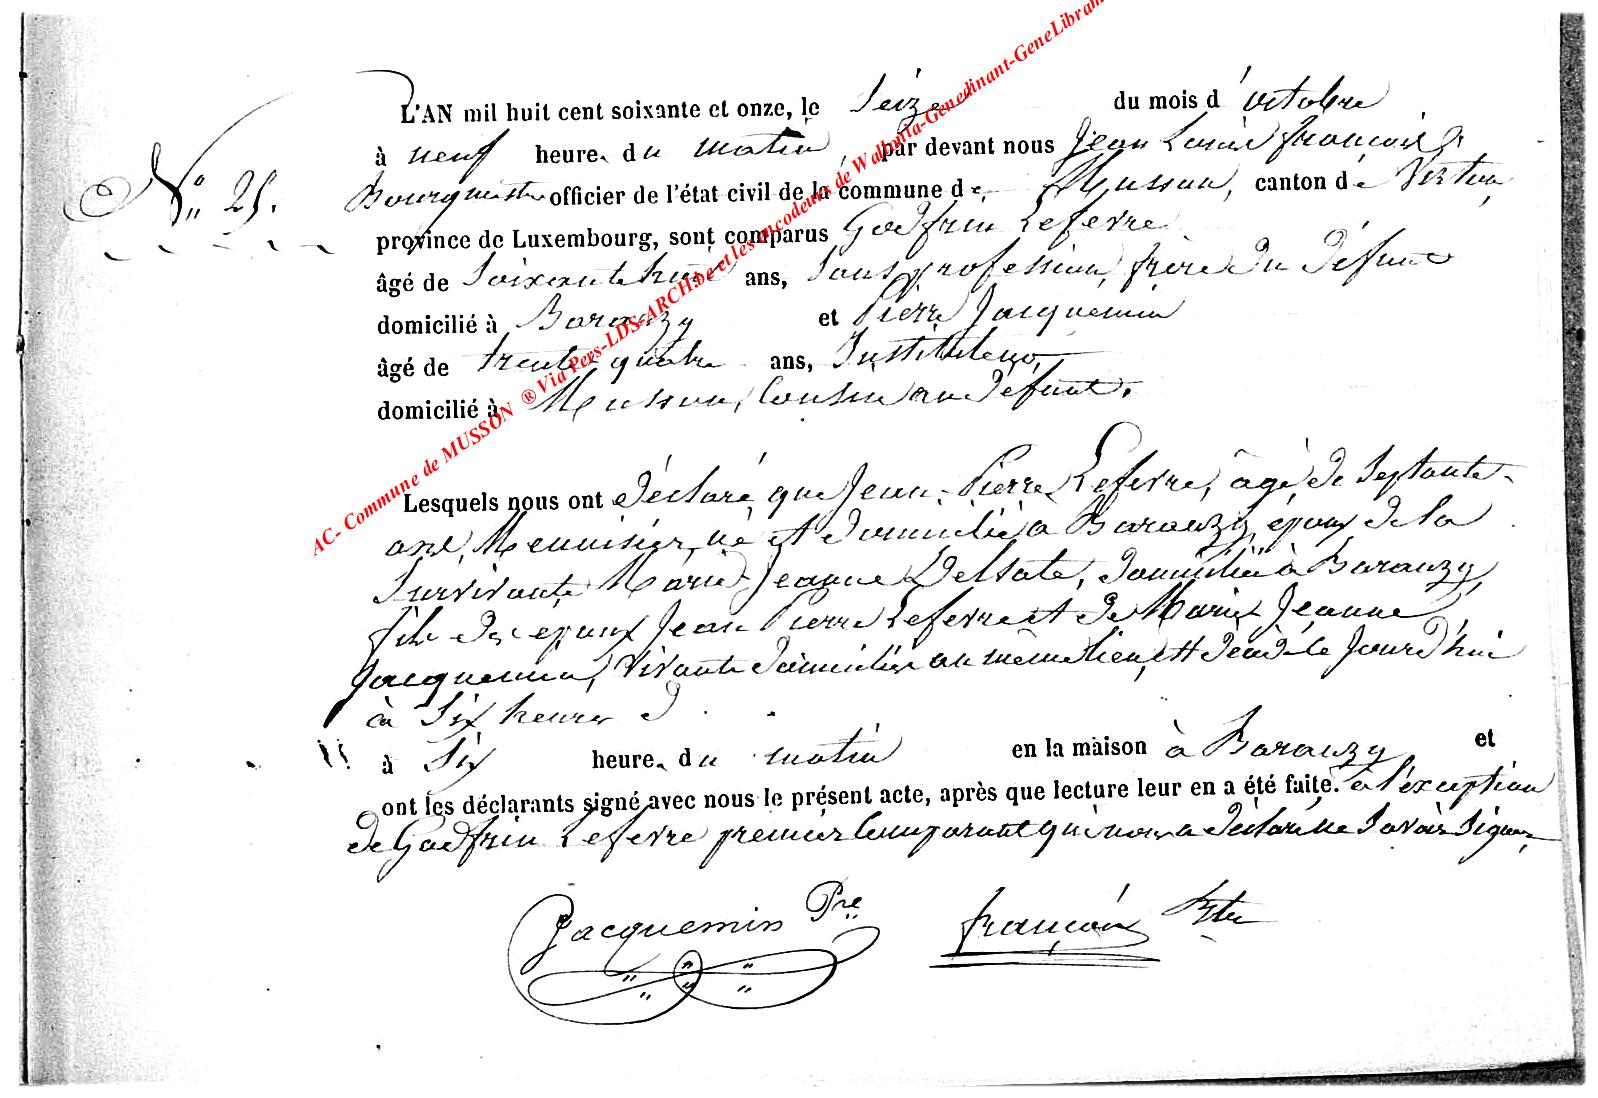 L'AN mil huit cent soixante et onze, le Seize du mois d'octobre
à neuf heure. du matin par devant nous Jean Louis françois,
N° 25. Bourgmestre officier de l'état civil de la commune de Musson, canton de Virton,
province de Luxembourg, sont comparus Godfrin Lefevre
âgé de Soixante huit ans, Sans profession, frère du défunt
domicilié à Baranzy et Pierre Jacquemin
âgé de trente quatre ans, Instituteur,
domicilié à Musson, Cousin au défunt.
Lesquels nous ont déclaré que Jean-Pierre Lefevre, âgé de Septante-
onze, Menuisier, né et domicilié à Baranzy, époux de la
Survivante Marie Jeanne Delsate, domiciliée à Baranzy,
fils des époux Jean Pierre Lefevre et de Marie Jeanne
Jacquemin, vivants domiciliés au même lieu, est décédé le Jourd'hui
à Six heures d
à Six heure. du matin en la maison à Baranzy et
ont les déclarants signé avec nous le présent acte, après que lecture leur en a été faite. à l'exception
de Godfrin Lefevre premier Comparant qui nous a déclaré ne Savoir Signer,
Jacquemin Pre françois
AC- Commune de MUSSON ® Via Pers-LDS-ARCH.be et les encodeurs de Wallonia-Genedinant-GeneLibram